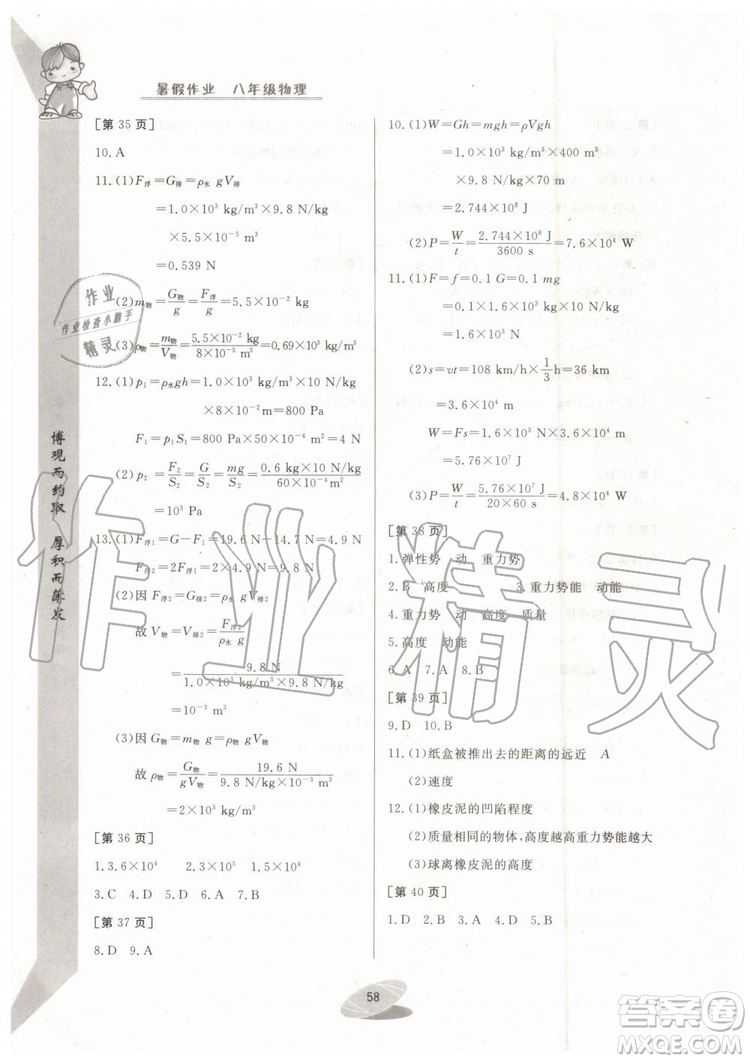 暑假作业 八年级物理
[第 35 页]
10. A
11. (1)F浮=G排=ρ水 gV排
=1.0×10³ kg/m³×9.8 N/kg
×5.5×10⁻⁵ m³
=0.539 N
(2)m物=G物/g=F浮/g=5.5×10⁻² kg
(3)ρ物=m物/V物=5.5×10⁻² kg/8×10⁻⁵ m³=0.69×10³ kg/m³
12. (1)p₁=ρ水gh=1.0×10³ kg/m³×10 N/kg
×8×10⁻² m=800 Pa
F₁=p₁S₁=800 Pa×50×10⁻⁴ m²=4 N
(2)p₂=F₂/S₂=G/S₂=mg/S₂=0.6 kg×10 N/kg/60×10⁻⁴ m²
=10³ Pa
13. (1)F浮1=G-F₁=19.6 N-14.7 N=4.9 N
F浮2=2F浮1=2×4.9 N=9.8 N
(2)因 F浮2=ρ水 gV排2=ρ水 gV物
故 V物=V排2=F浮2/ρ水 g
=9.8 N/1.0×10³ kg/m³×9.8 N/kg
=10⁻³ m³
(3)因 G物=m物 g=ρ物 gV物
故 ρ物=G物/gV物=19.6 N/9.8 N/kg×10⁻³ m³
=2×10³ kg/m³
[第 36 页]
1. 3.6×10⁴ 2. 3×10⁵ 1.5×10⁴
3. C 4. D 5. D 6. A 7. B
[第 37 页]
8. D 9. A
10. (1)W=Gh=mgh=ρVgh
=1.0×10³ kg/m³×400 m³
×9.8 N/kg×70 m
=2.744×10⁸ J
(2)P=W/t=2.744×10⁸ J/3600 s=7.6×10⁴ W
11. (1)F=f=0.1 G=0.1 mg
=0.1×1.6×10³ kg×10 N/kg
=1.6×10³ N
(2)s=vt=108 km/h×1/3 h=36 km
=3.6×10⁴ m
W=Fs=1.6×10³ N×3.6×10⁴ m
=5.76×10⁷ J
(3)P=W/t=5.76×10⁷ J/20×60 s=4.8×10⁴ W
[第 38 页]
1. 弹性势 动 重力势
2. B 高度 3. 重力势能 动能
4. 重力势 动 高度 质量
5. 高度 动能
6. A 7. A 8. B
[第 39 页]
9. D 10. B
11. (1)纸盒被推出去的距离的远近 A
(2)速度
12. (1)橡皮泥的凹陷程度
(2)质量相同的物体,高度越高重力势能越大
(3)球离橡皮泥的高度
[第 40 页]
1. D 2. B 3. A 4. D 5. D
博观而约取 厚积而薄发
58
作业
作业检查小助手
精灵
作业精灵
答案圈
MXQE.COM